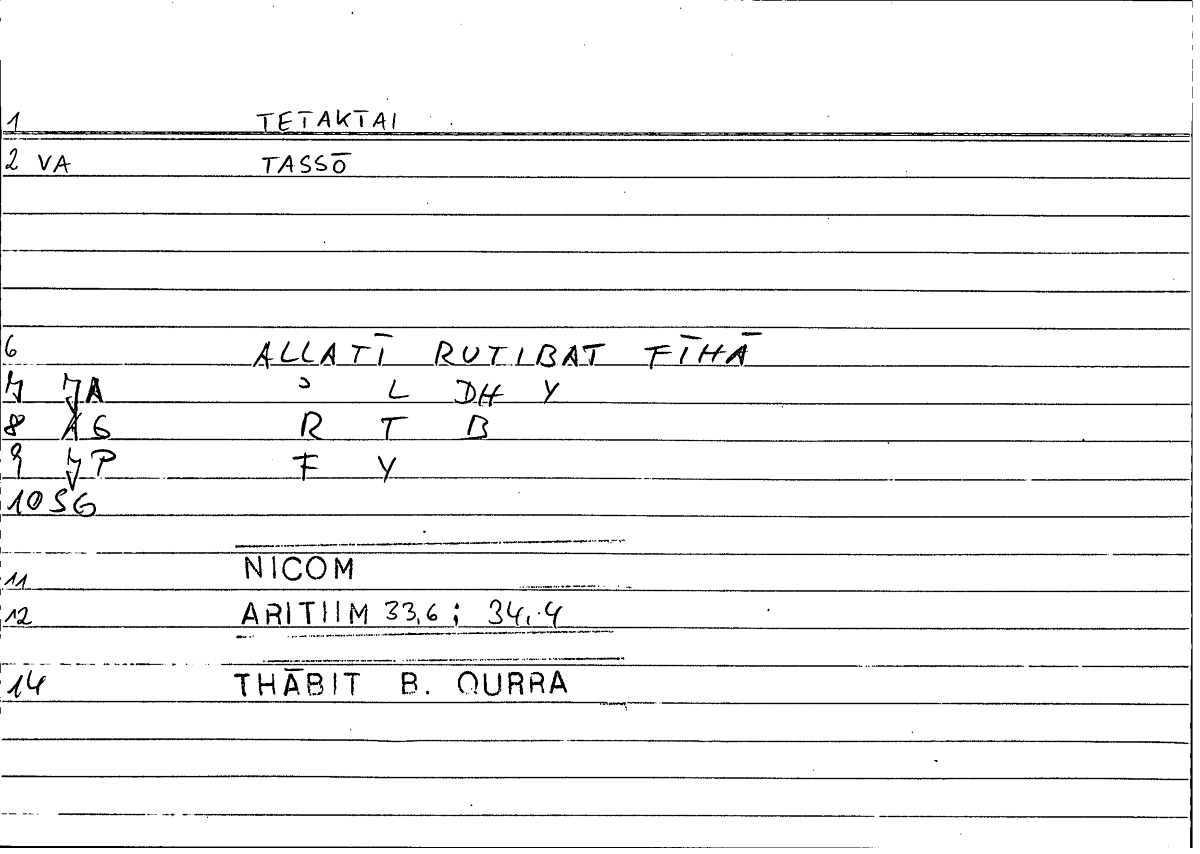 1 TETAKTAI
2 VA TASSŌ
6 ALLATĪ RUTIBAT FĪHĀ
7 JA ʾ L DH Y
8 AG R T B
9 JP F Y
10 SG
11 NICOM
12 ARITIIM 33,6 ; 34,4
14 THĀBIT B. QURRA